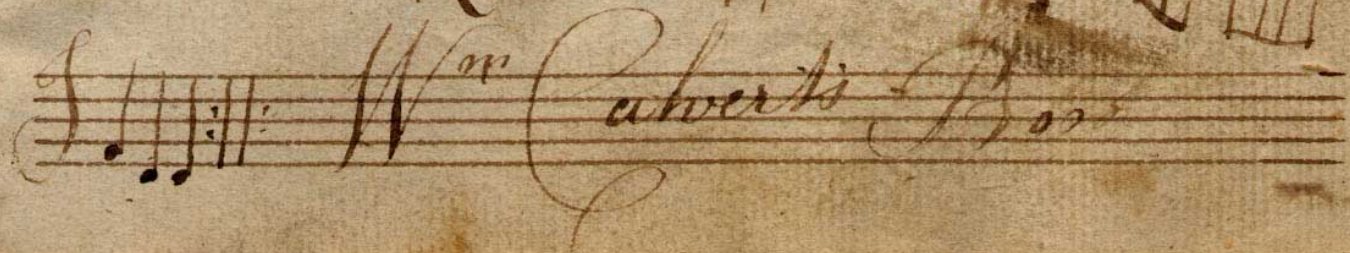 Wm Calverts Book